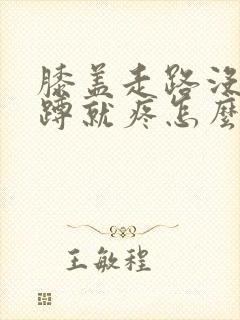 膝盖走路没
蹲就疼怎麼
王敏程